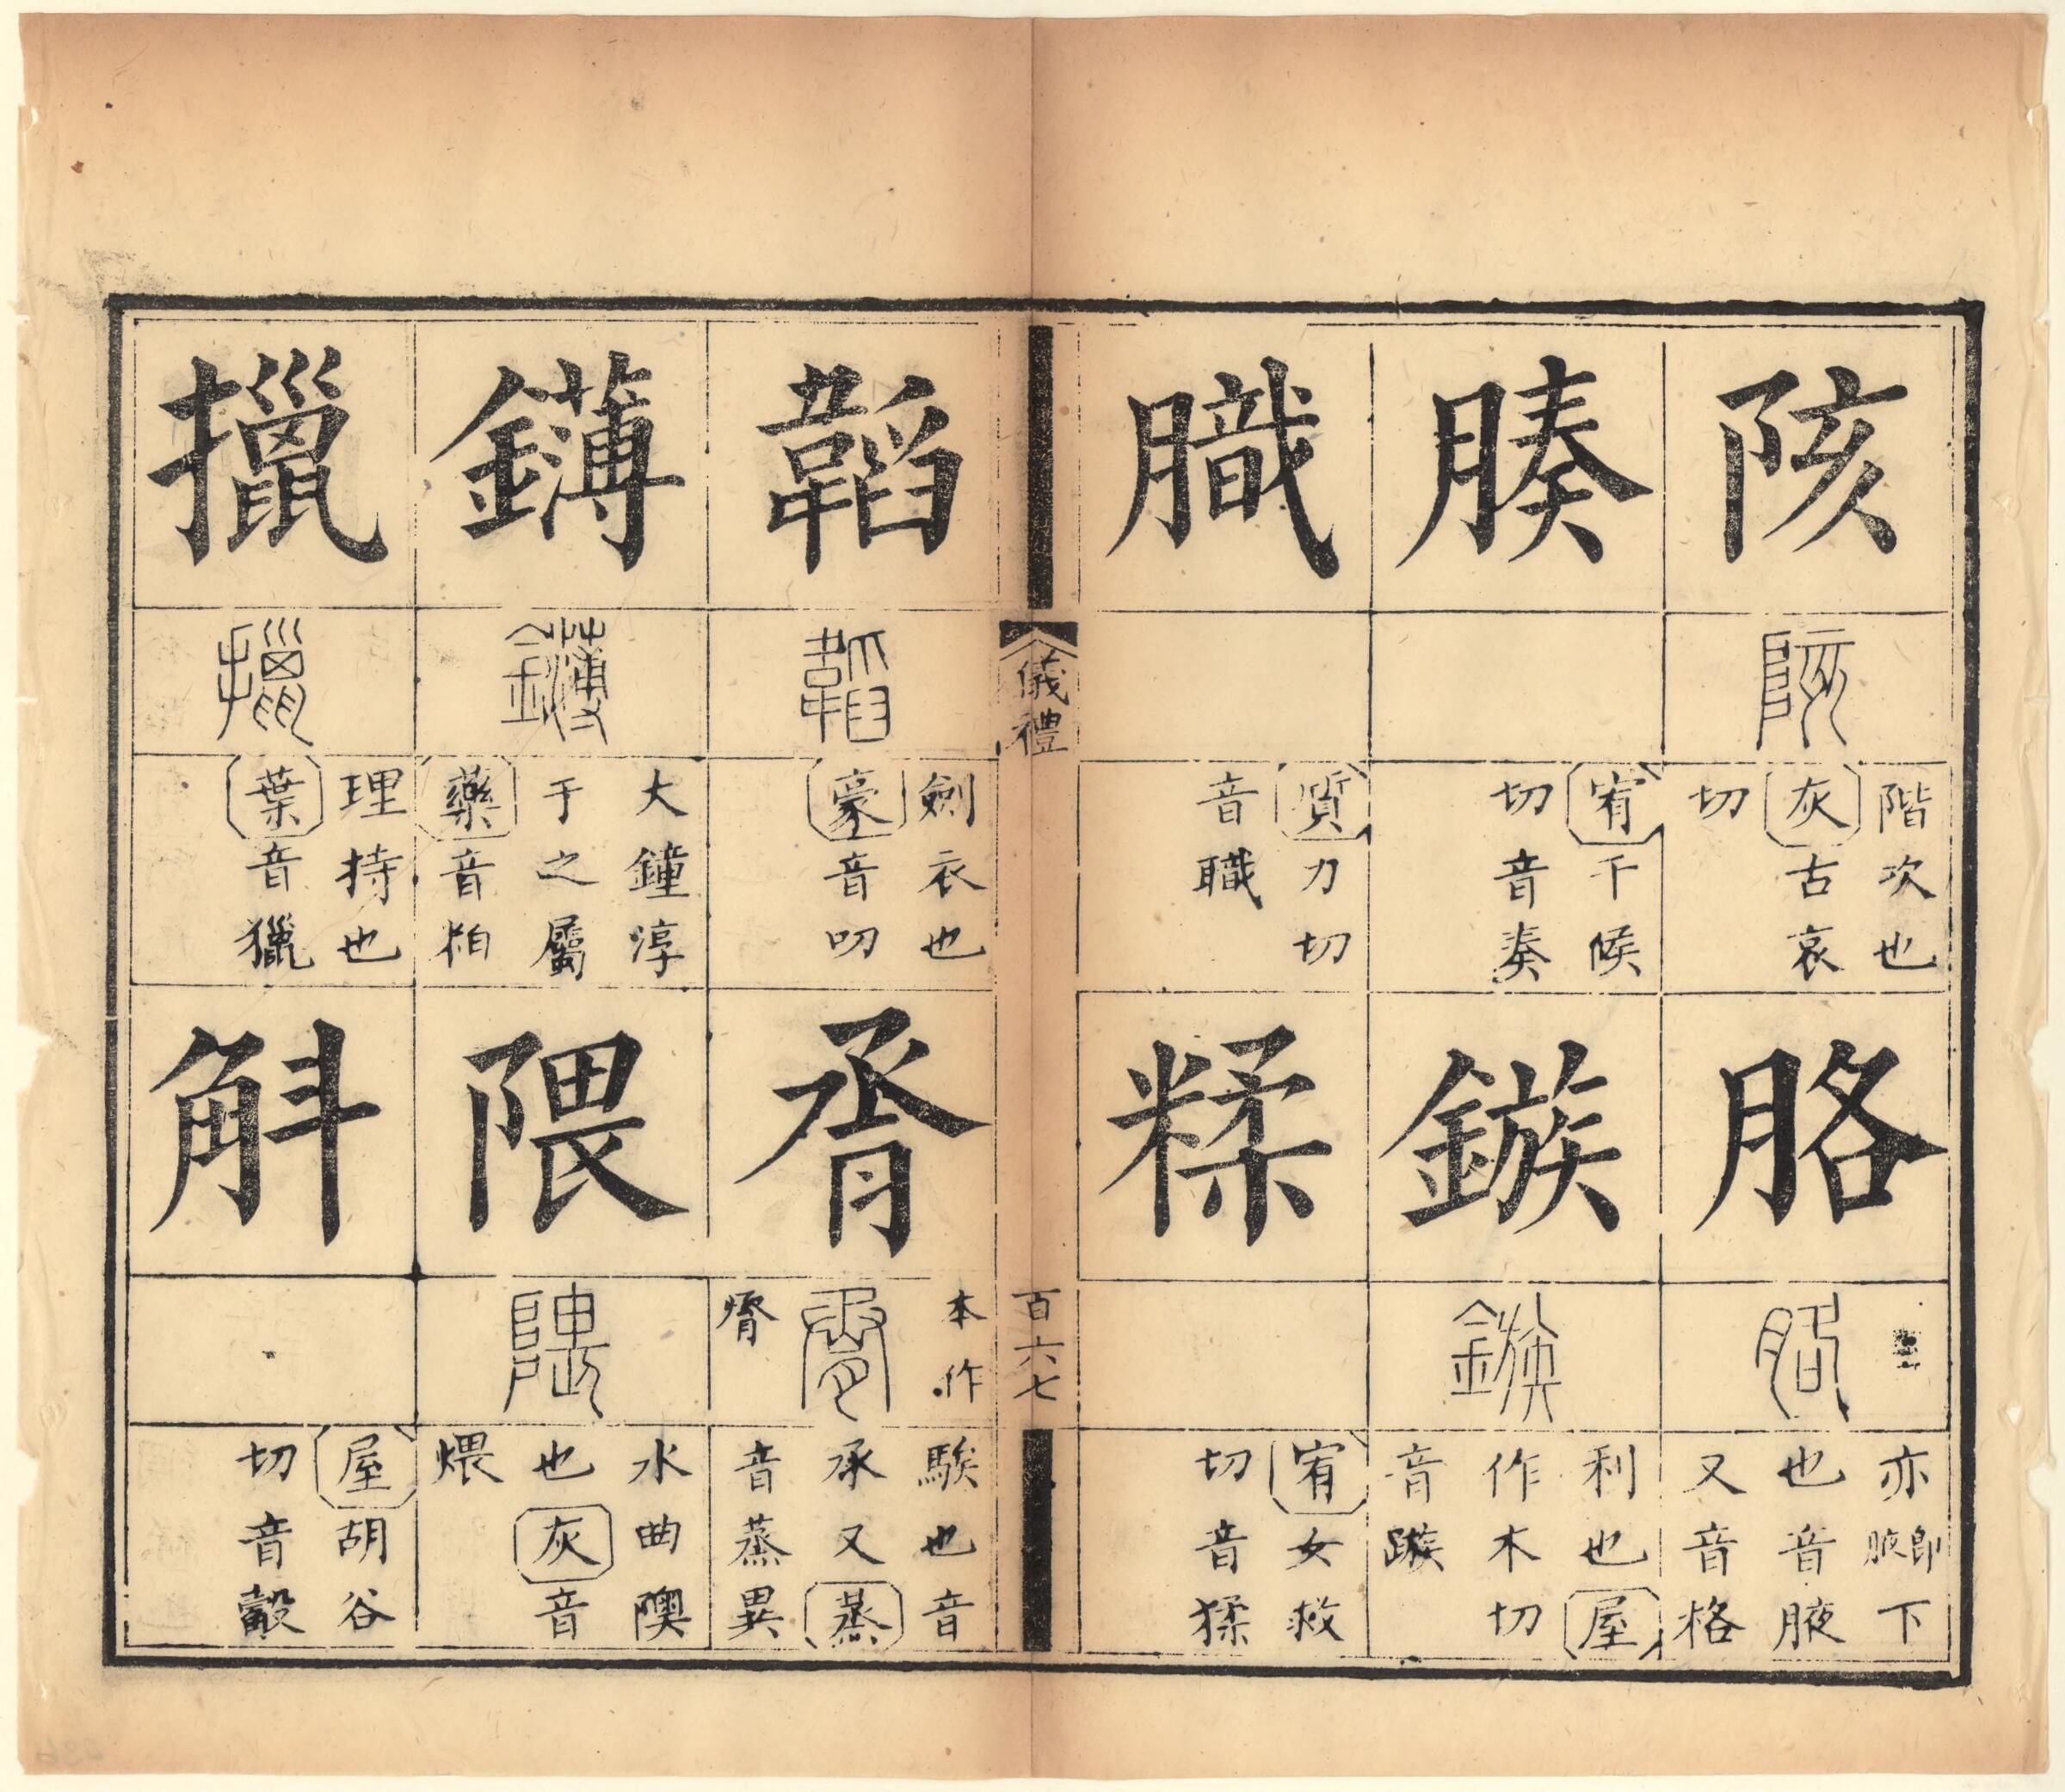 陔
陔
階次也
灰古哀
切
胳
胳
亦即腋下
也音腋
又音格
腠
宥千候
切音奏
鏃
鏃
利也屋
作木切
音
膱
質力切
音職
糅
宥女救
切音猱
儀禮
百六七
韜
韜
劍衣也
豪音叨
脀
本作
脀
騃也音
承又蒸
音蒸異
鑮
鑮
大鐘淳
于之屬
藥音粕
隈
隈
水曲隩
也灰音
煨
擸
擸
理持也
葉音獵
斛
屋胡谷
切音縠